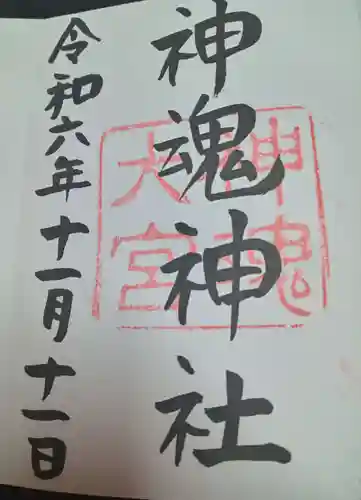 神魂神社
神魂
大宮
令和六年十一月十一日